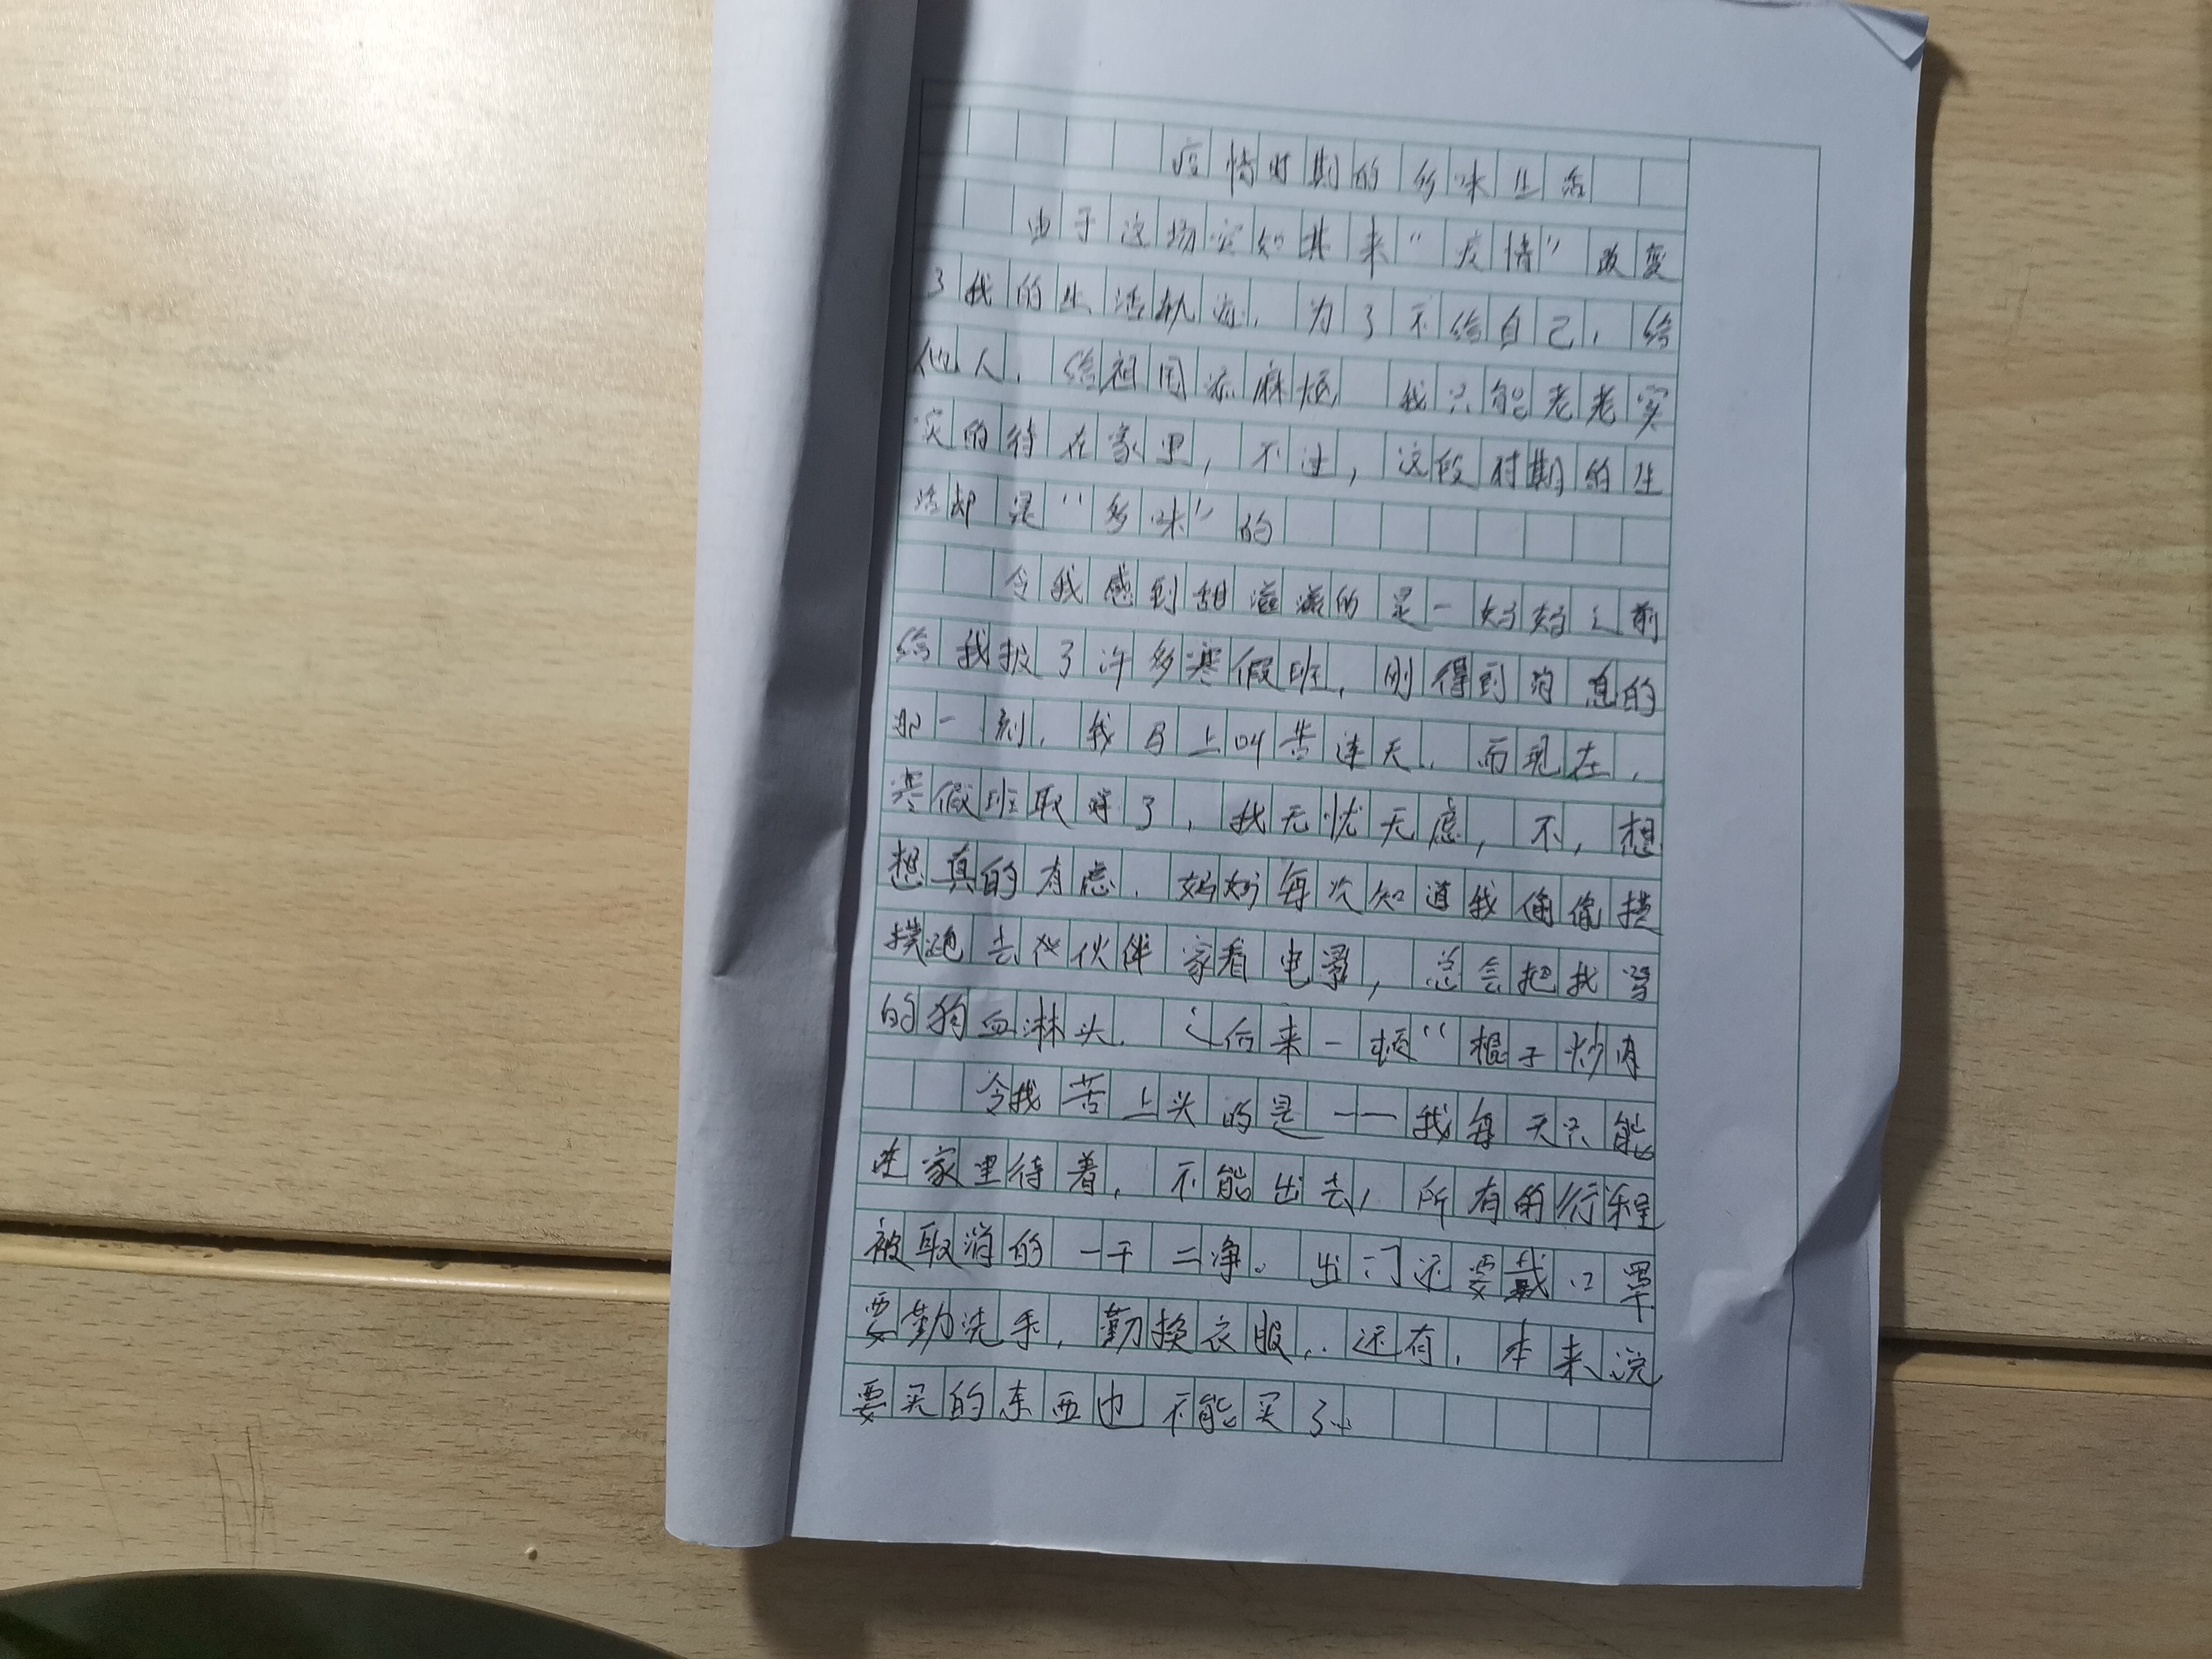 疫情时期的多味生活
由于这场突如其来“疫情”改变
了我的生活轨迹，为了不给自己，给
他人，给祖国添麻烦 我只能老老实
实的待在家里，不过，这段时期的生
活却是“多味”的
令我感到甜滋滋的是一妈妈之前
给我报了许多寒假班，刚得到消息的
那一刻，我马上叫苦连天，而现在，
寒假班取消了，我无忧无虑，不，想
想真的有虑，妈妈每次知道我偷偷摸
摸跑去伙伴家看电影，总会把我骂
的狗血淋头，之后来一顿“棍子炒肉
令我苦上头的是——我每天只能
在家里待着，不能出去，所有的行程
被取消的一干二净。出门还要戴口罩
要勤洗手，勤换衣服，.还有，本来说
要买的东西也不能买了。